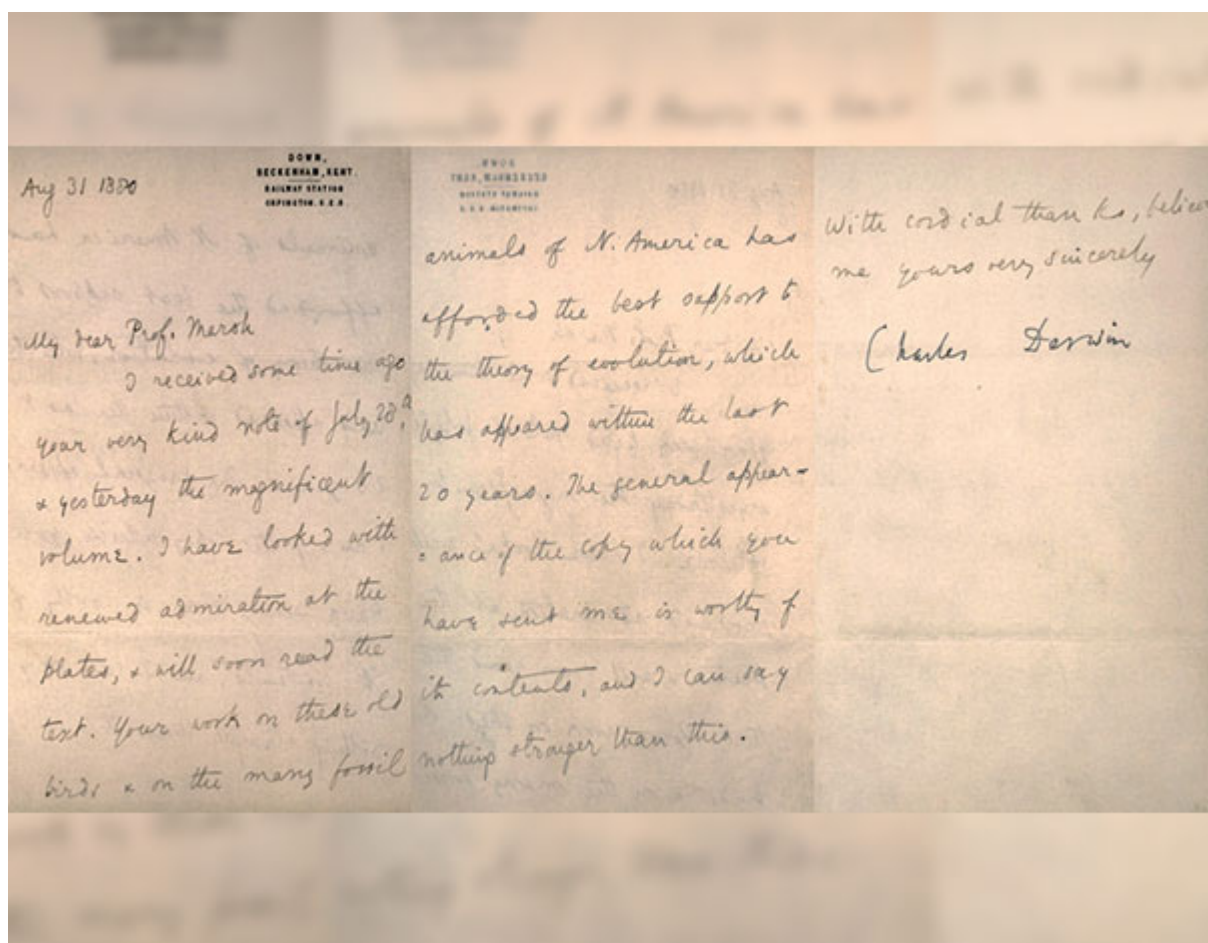 Aug 31 1880
DOWN,
BECKENHAM, KENT.
RAILWAY STATION
ORPINGTON. S.E.R.
My dear Prof. Marsh
I received some time ago
your very kind note of July 28th,
& yesterday the magnificent
volume. I have looked with
renewed admiration at the
plates, & will soon read the
text. Your work on these old
birds & on the many fossil
animals of N. America has
afforded the best support to
the theory of evolution, which
has appeared within the last
20 years. The general appear-
=ance of the copy which you
have sent me is worthy of
its contents, and I can say
nothing stronger than this.
With cordial thanks, believe
me yours very sincerely
Charles Darwin